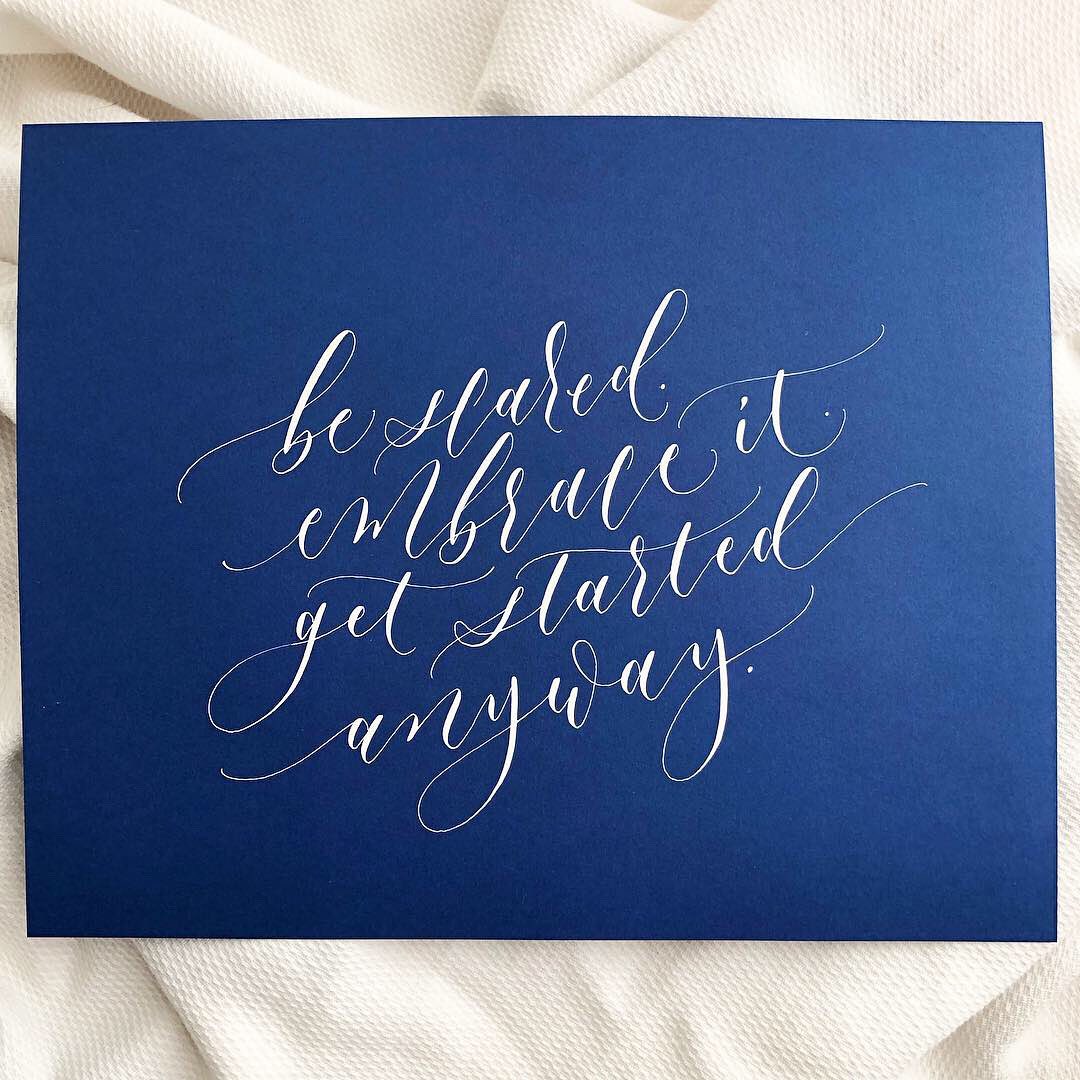 be scared.
embrace it.
get started
anyway.